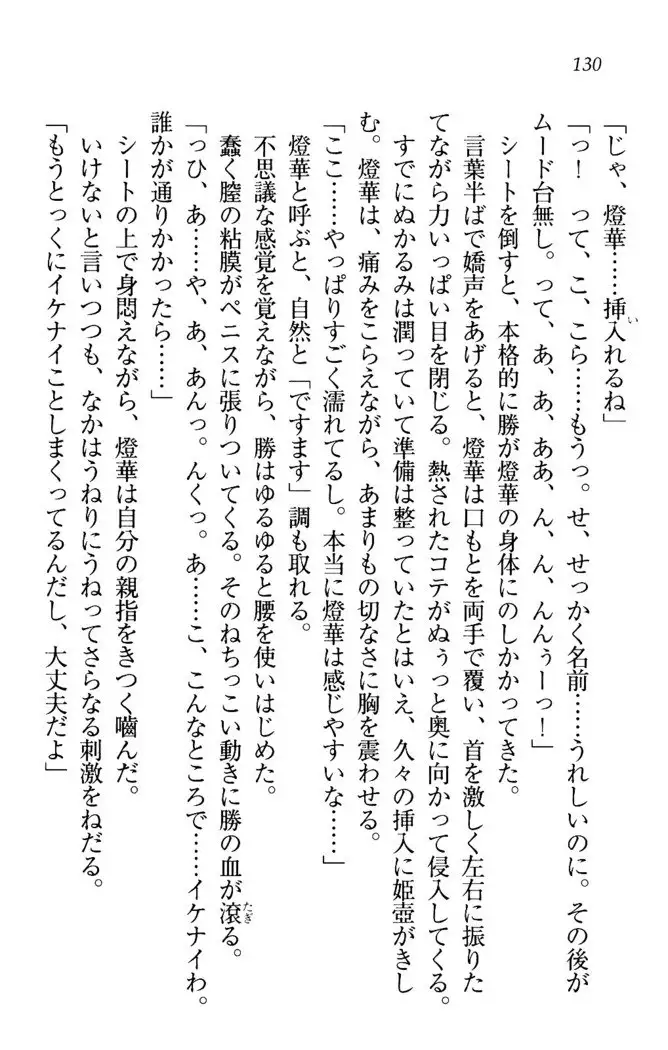 130
「じゃ、燈華……挿入れるね」
「っ！　って、こ、こら……もうっ。せ、せっかく名前……うれしいのに。その後が
ムード台無し。って、あ、あ、ああ、ん、ん、んんぅーっ！」
シートを倒すと、本格的に勝が燈華の身体にのしかかってきた。
言葉半ばで嬌声をあげると、燈華は口もとを両手で覆い、首を激しく左右に振りた
てながら力いっぱい目を閉じる。熱されたコテがぬぅっと奥に向かって侵入してくる。
すでにぬかるみは潤っていて準備は整っていたとはいえ、久々の挿入に姫壺がきし
む。燈華は、痛みをこらえながら、あまりもの切なさに胸を震わせる。
「ここ……やっぱりすごく濡れてるし。本当に燈華は感じやすいな……」
燈華と呼ぶと、自然と「ですます」調も取れる。
不思議な感覚を覚えながら、勝はゆるゆると腰を使いはじめた。
蠢く膣の粘膜がペニスに張りついてくる。そのねちっこい動きに勝の血が滾る。
「っひ、あ……や、あ、あんっ。んくっ。あ……こ、こんなところで……イケナイわ。
誰かが通りかかったら……」
シートの上で身悶えながら、燈華は自分の親指をきつく嚙んだ。
いけないと言いつつも、なかはうねりにうねってさらなる刺激をねだる。
「もうとっくにイケナイことしまくってるんだし、大丈夫だよ」